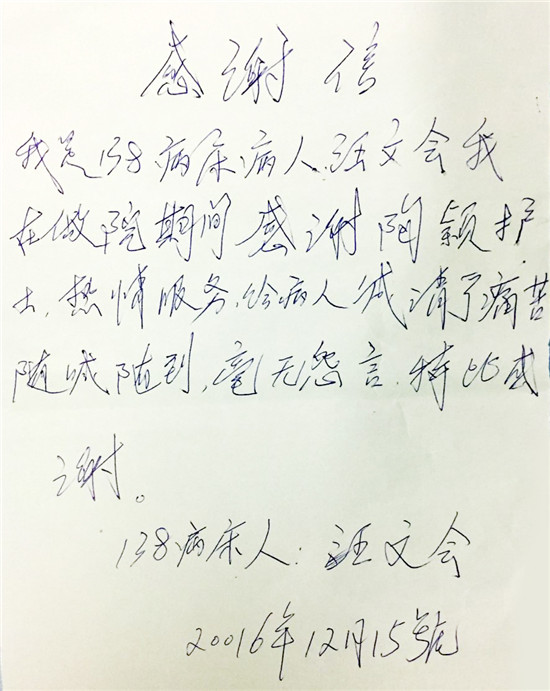 感谢信
我是138病床病人汪文会我
在做院期间感谢陶颖护
士,热情服务,给病人减清了痛苦
随喊随到,毫无怨言.特此感
谢。
138病床人:汪文会
20016年12月15号